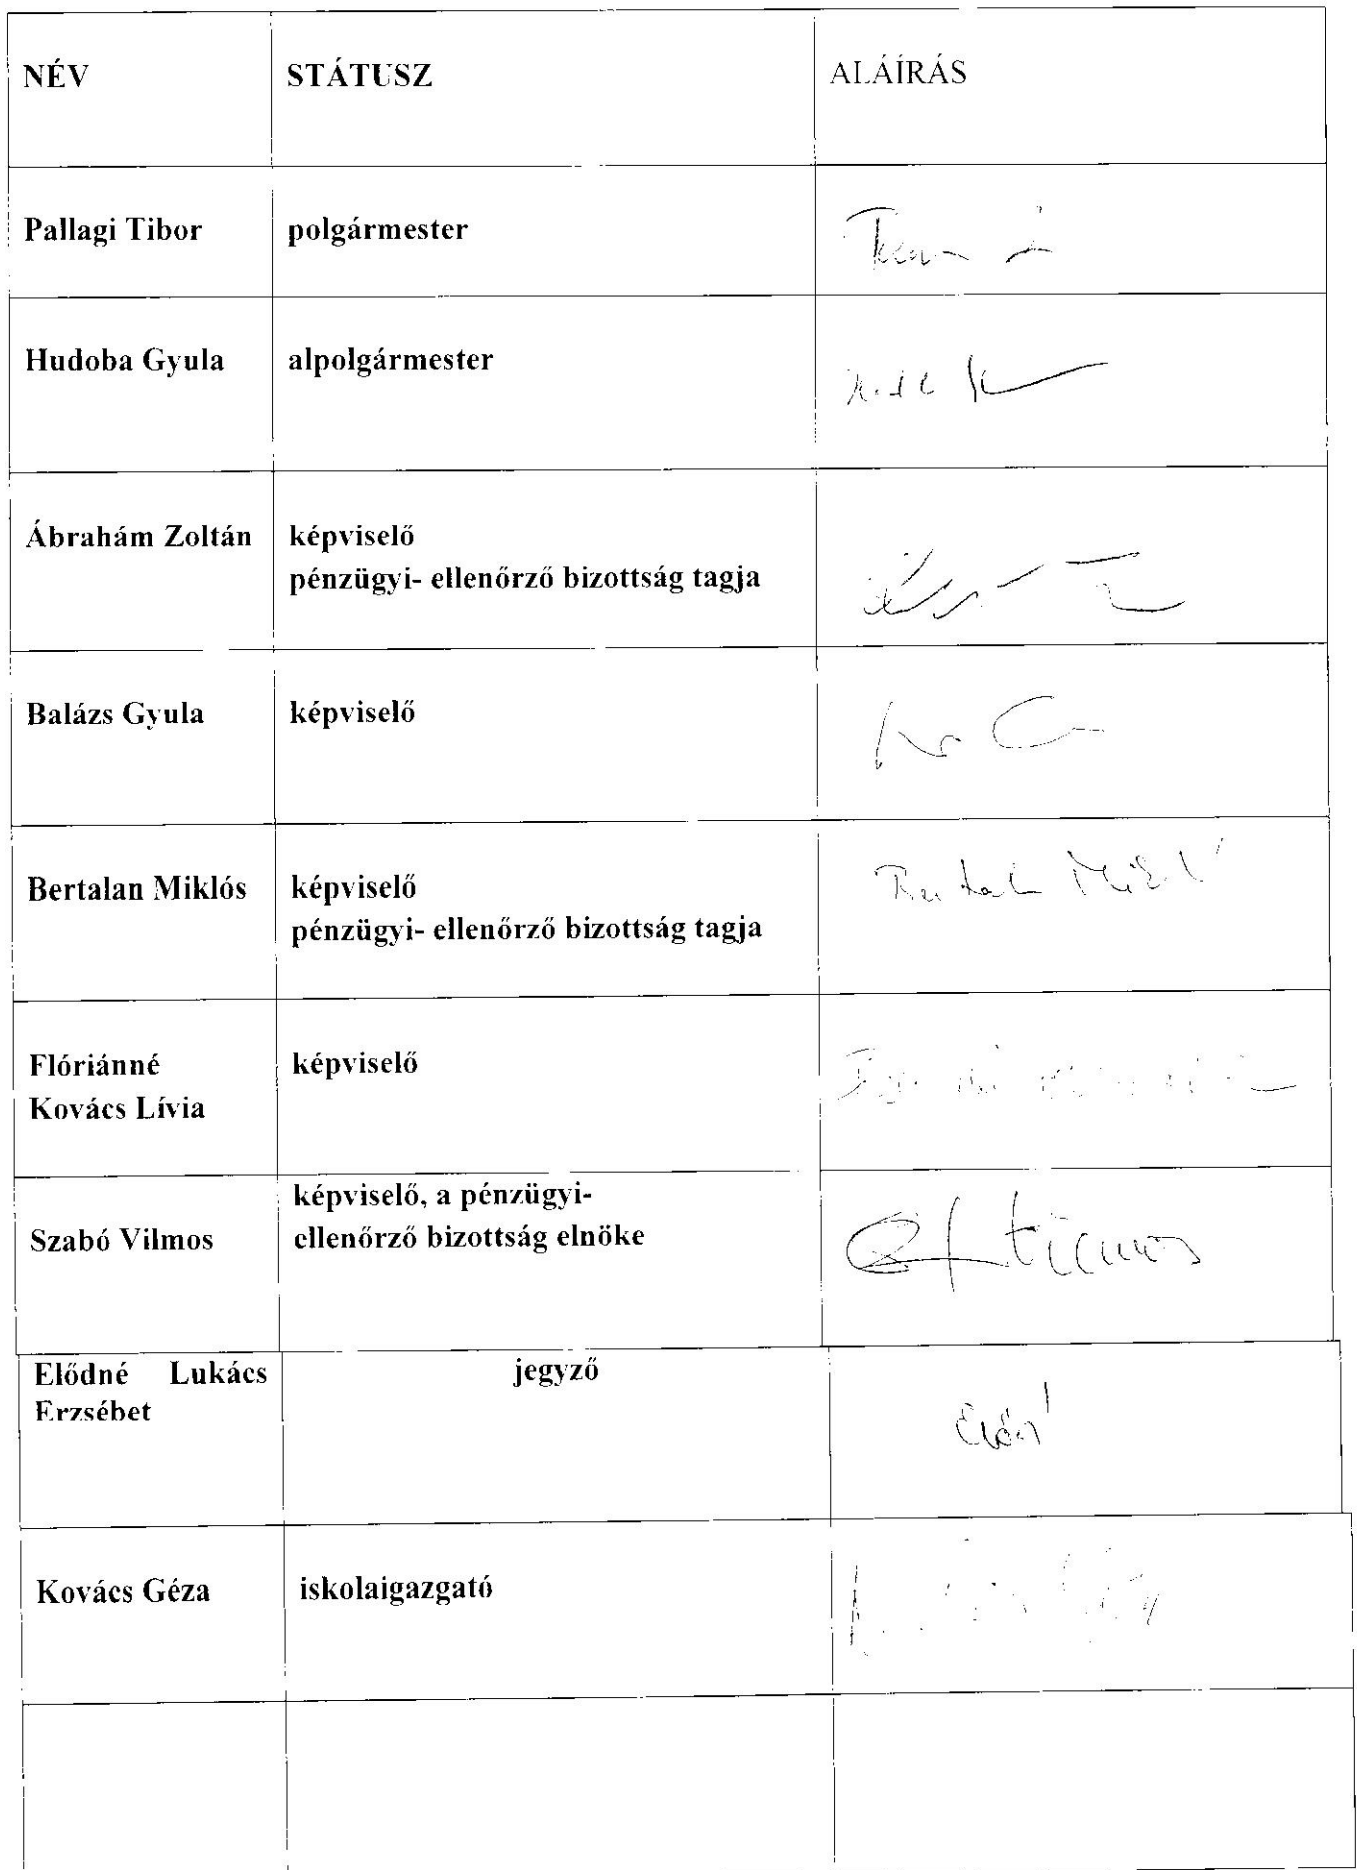 NÉV STÁTUSZ ALÁÍRÁS
Pallagi Tibor polgármester
Hudoba Gyula alpolgármester
Ábrahám Zoltán képviselő
pénzügyi- ellenőrző bizottság tagja
Balázs Gyula képviselő
Bertalan Miklós képviselő
pénzügyi- ellenőrző bizottság tagja
Flóriánné képviselő
Kovács Lívia
képviselő, a pénzügyi-
Szabó Vilmos ellenőrző bizottság elnöke
Elődné Lukács jegyző
Erzsébet
Kovács Géza iskolaigazgató